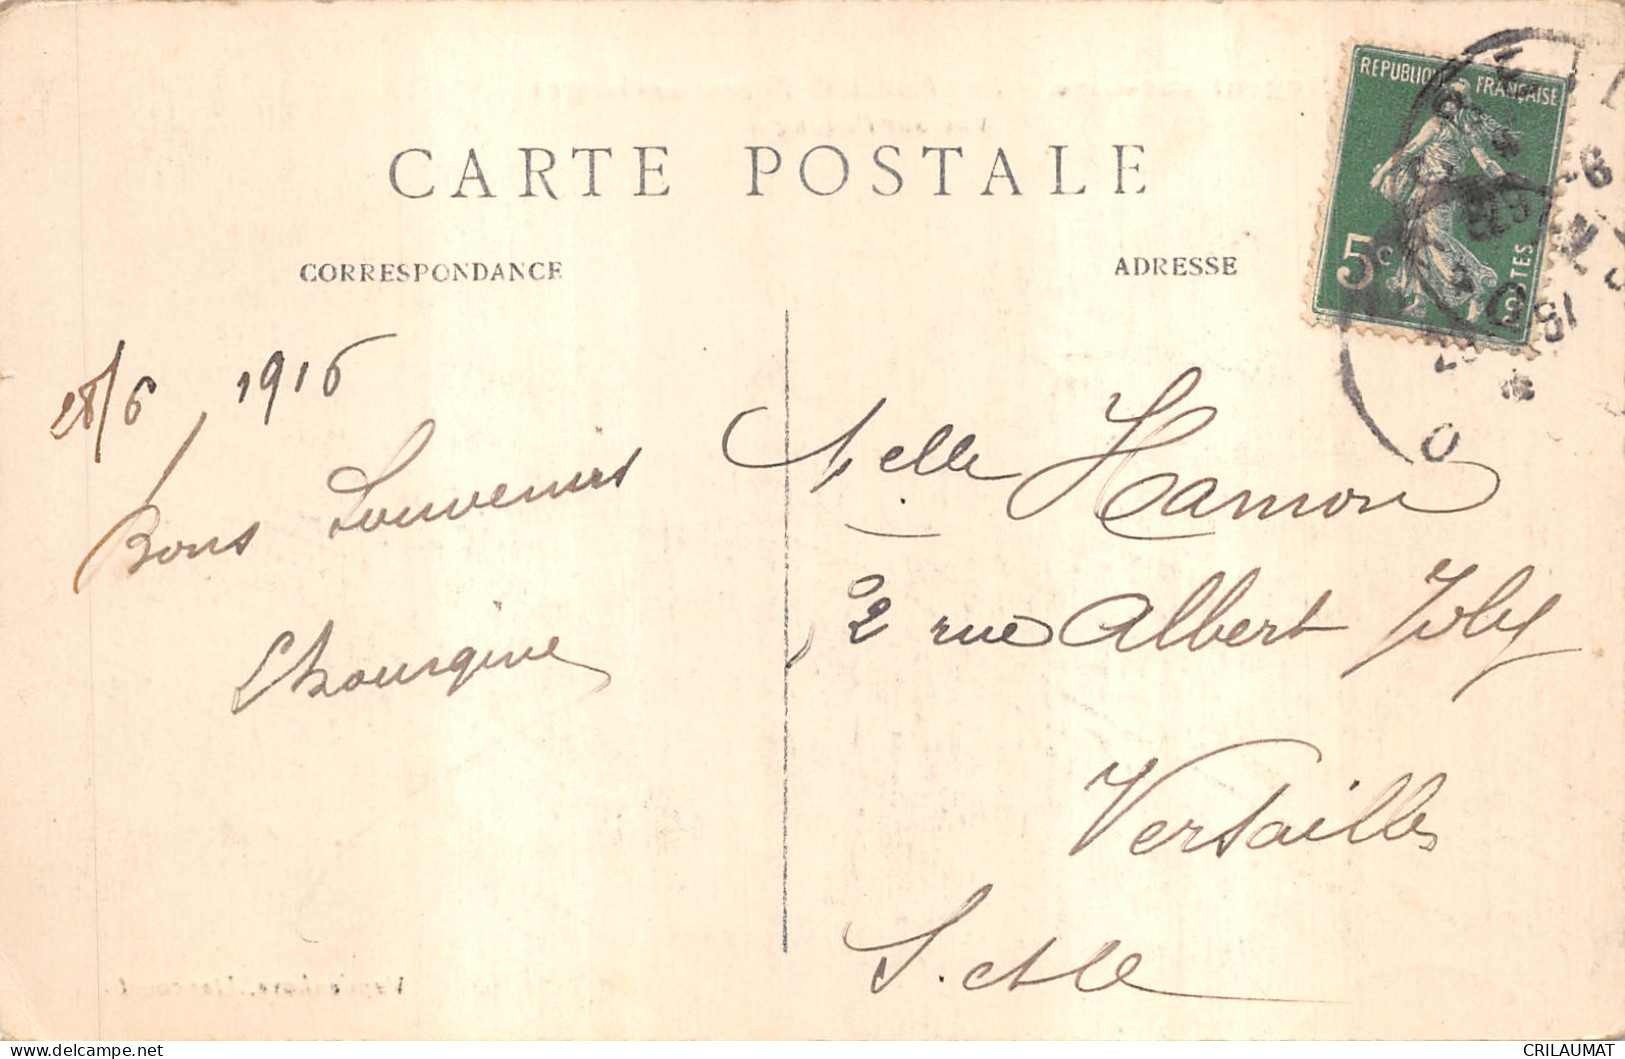 CARTE POSTALE
CORRESPONDANCE
ADRESSE
REPUBLIQUE FRANÇAISE
5c
POSTES
28/6 1916
Bons Souvenirs
Melle Hamon
2 rue Albert Joly
Versailles
S. et Oe
CRILAUMAT